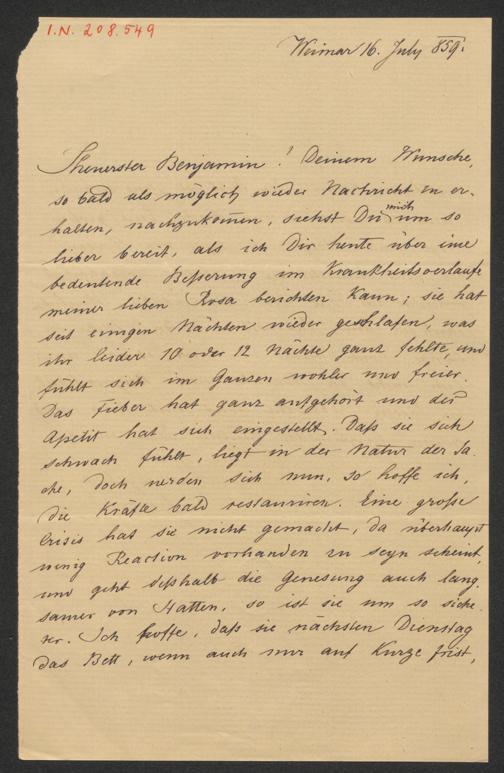 I.N. 208.549
Weimar 16. July 859.
Theuerster Benjamin! Deinem Wunsche,
so bald als möglich wieder Nachricht zu er-
halten, nachzukom̅en, siehst Du mich um so
lieber bereit, als ich Dir heute über eine
bedeutende Beßerung im Krankheitsverlaufe
meiner lieben Rosa berichten kann; sie hat
seit einigen Nächten wieder geschlafen, was
ihr leider 10 oder 12 Nächte ganz fehlte, und
fühlt sich im Ganzen wohler und freier.
Das Fieber hat ganz aufgehört und der
Apetit hat sich eingestellt. Daß sie sich
schwach fühlt, liegt in der Natur der Sa-
che, doch werden sich nun, so hoffe ich,
die Kräfte bald restauriren. Eine große
Crisis hat sie nicht gemacht, da überhaupt
wenig Reaction vorhanden zu seyn scheint,
und geht deßhalb die Genesung auch lang-
samer von Statten, so ist sie um so siche-
rer. Ich hoffe, daß sie nächsten Dienstag
das Bett, wenn auch nur auf kurze Frist,